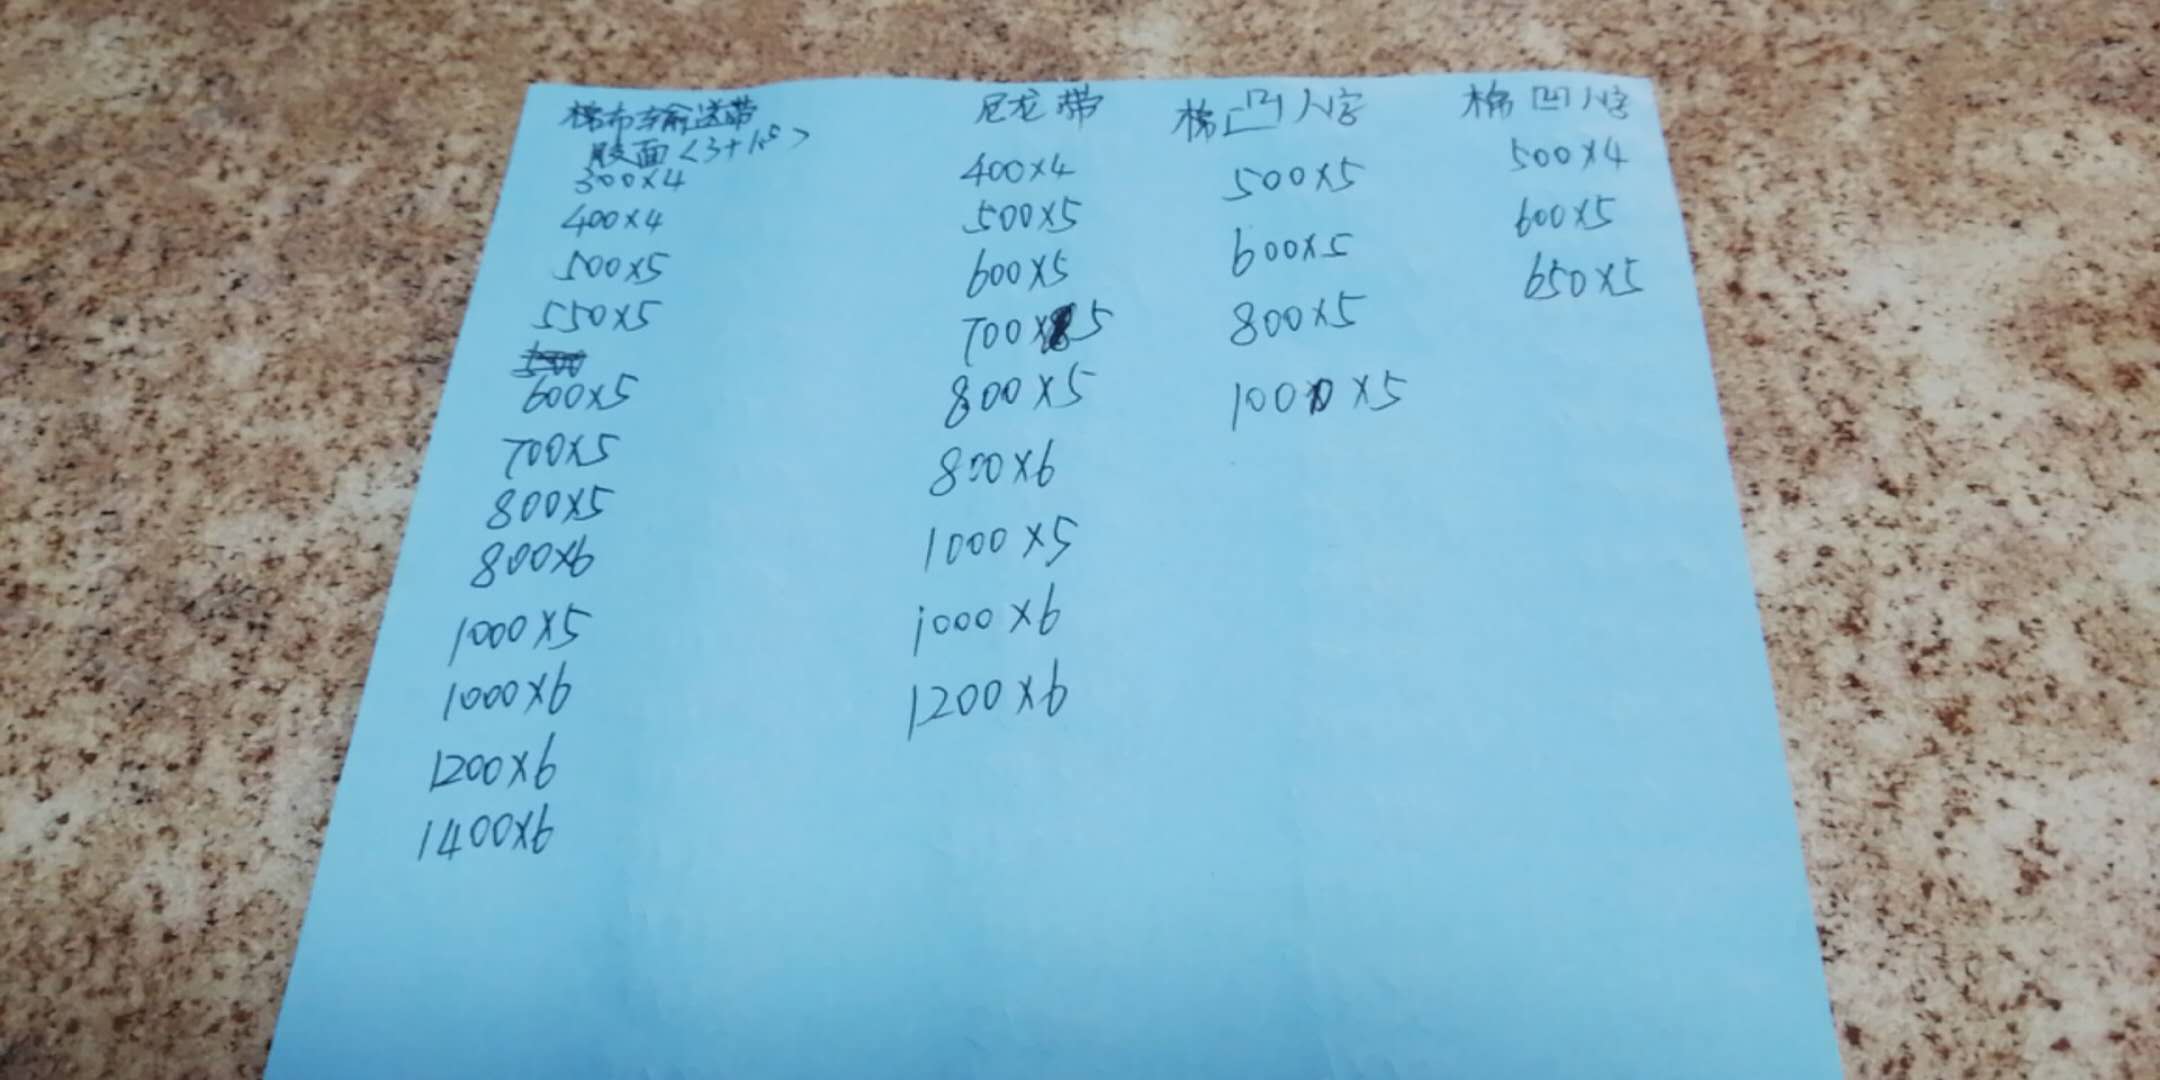 棉布输送带
胶面<3+1.5>
300×4
400×4
500×5
550×5
600×5
700×5
800×5
800×6
1000×5
1000×6
1200×6
1400×6
尼龙带
400×4
500×5
600×5
700×5
800×5
800×6
1000×5
1000×6
1200×6
棉凸人字
500×5
600×5
800×5
1000×5
棉凹人字
500×4
600×5
650×5